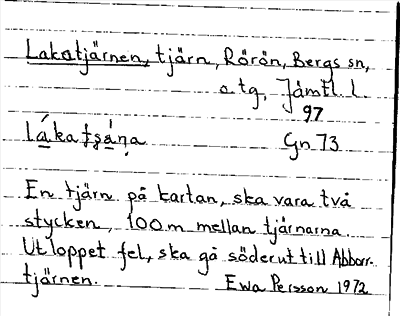 Lakatjärnen, tjärn, Rörön, Bergs sn,
o. tg, Jämtl. l.
97
lákatʂáṇa Gn 73
En tjärn på kartan, ska vara två
stycken, 100 m mellan tjärnarna.
Utloppet fel, ska gå söderut till Abborr-
tjärnen. Ewa Persson 1972